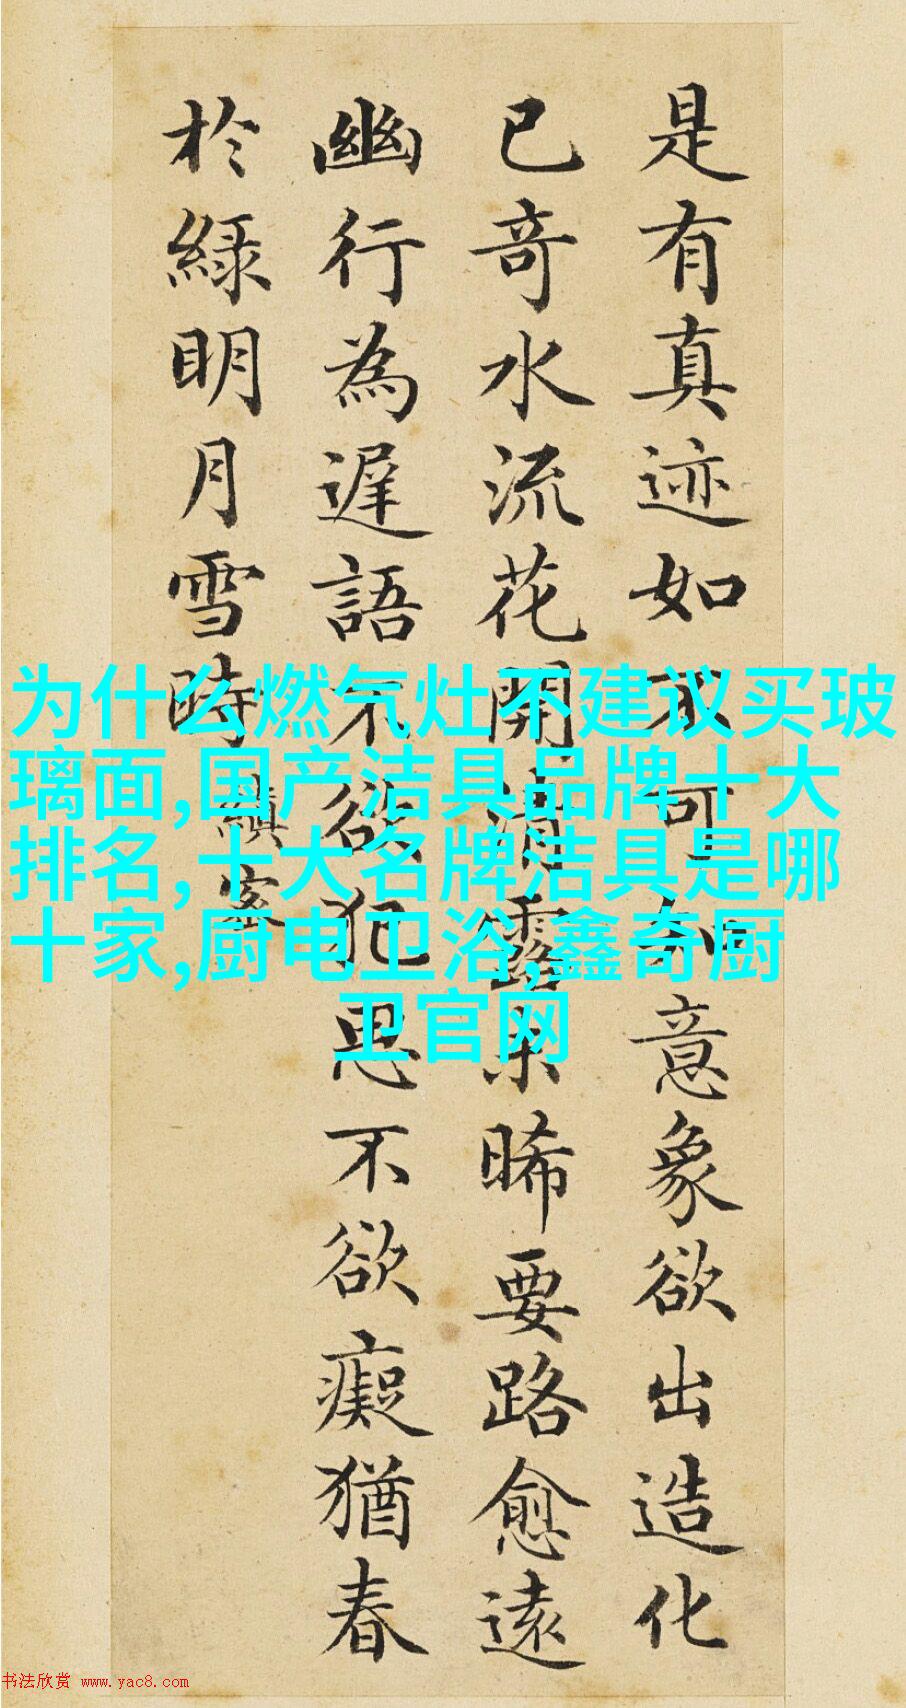 是有真迹如不可知意象欲出造化
已奇水流花開清露未晞要路愈遠
幽行為遲語不欲犯思不欲癡猶春
於綠明月雪時
縝密
为什么燃气灶不建议买玻
璃面,国产洁具品牌十大
排名,十大名牌洁具是哪
十家,厨电卫浴,鑫奇厨
卫官网
书法欣赏 www.yac8.com